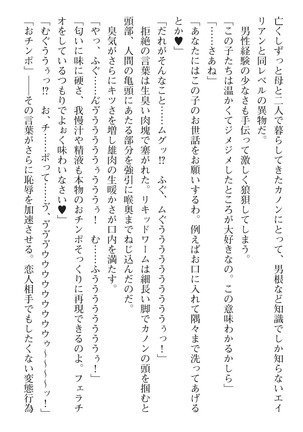 亡くしずっと母と二人で暮らしてきたカノンにとって、男根など知識でしか知らないエイ
リアンと同レベルの異物だ。
男性経験の少なさも手伝って激しく狼狽してしまう。
「この子たちは温かくてジメジメしたところが大好きなの。この意味わかるかしら」
「……さあね」
「あなたにはこの子のお世話をお願いするわ。例えばお口に入れて隅々まで洗ってあげる
とか♥」
「だれがそんなこと……ムグッ!? ふぐ、ムぐううううううううううぅっ！」
拒絶の言葉は生臭い肉塊で塞がれた。リキッドワームは細長い脚でカノンの頭を掴むと
頭部、人間の亀頭にあたる部分を強引に喉奥までねじ込んだのだ。
臭気がさらにキツさを増し雄肉の生暖かさが口内を満たす。
「やっ、ふぐ……んううううううううう！ む……ふううううううううぅ！」
「匂いに味に硬さ、我慢汁や精液も本物のおチンポそっくりに再現できるのよ。フェラチ
オをしているつもりでよぉく味わいなさい♥」
「むぐううぅっ!? お、チ……ポって……ウウウウウウウウウウウ～～～～ッ！」
「おチンポ」――その言葉がさらに恥辱を加速させる。恋人相手でもしたくない変態行為